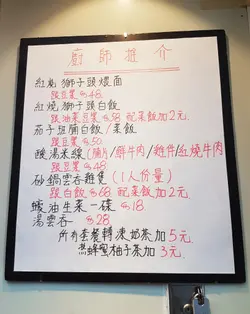 廚師推介
紅燒獅子頭煨面
跟豆漿 $48.
紅燒獅子頭白飯
跟油菜豆漿 $58 配菜飯加2元
茄子班腩白飯/菜飯
跟豆漿 $50.
酸湯米線(腩片/鮮牛肉/雞件/紅燒牛肉
跟豆漿 $48
砂鍋雲吞雞隻(1人份量)
跟白飯 $68 配菜飯加2元.
蠔油生菜一碟 $18.
湯雲吞 $28
所有套餐轉凍奶茶加5元
熱蜂蜜柚子茶加3元.